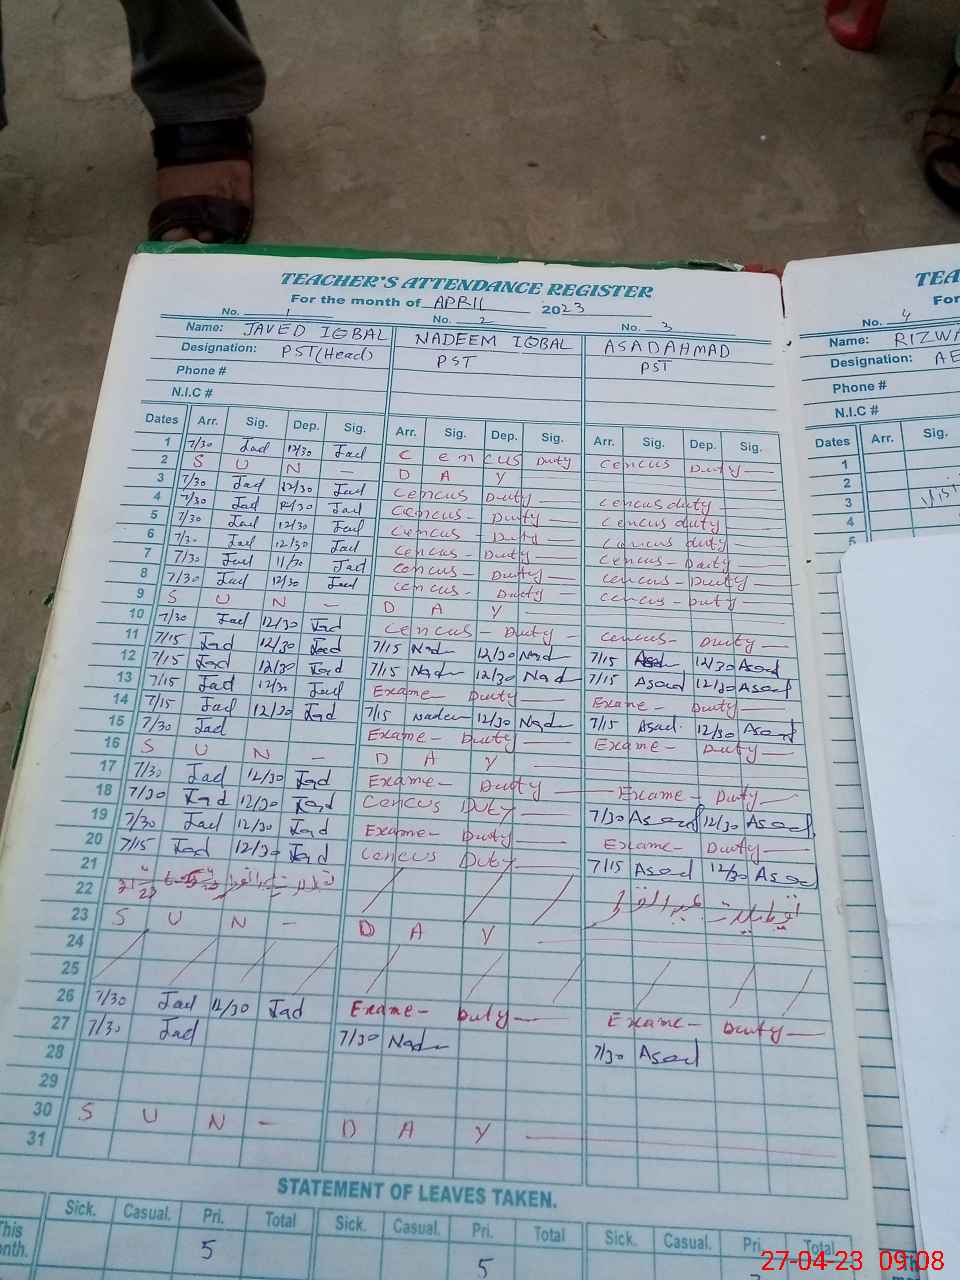 TEACHER'S ATTENDANCE REGISTER
For the month of APRIL 2023
No. 1 No. 2 No. 3
Name: JAVED IQBAL NADEEM IQBAL ASADAHMAD
Designation: PST(Head) PST PST
Phone #
N.I.C #
Dates Arr. Sig. Dep. Sig. Arr. Sig. Dep. Sig. Arr. Sig. Dep. Sig.
1 7/30 Jad 12/30 Jad Cencus Duty Cencus Duty
2 S U N - D A Y
3 7/30 Jad 12/30 Jad Cencus Duty Cencus duty
4 7/30 Jad 12/30 Jad Cencus - Duty Cencus duty
5 7/30 Jad 12/30 Jad Cencus - Duty Cencus duty
6 7/30 Jad 12/30 Jad Cencus - Duty Cencus - Duty
7 7/30 Jad 11/30 Jad Cencus - Duty Cencus - Duty
8 7/30 Jad 12/30 Jad Cencus - Duty Cencus - Duty
9 S U N - D A Y
10 7/30 Jad 12/30 Jad Cencus - Duty - Cencus - Duty
11 7/15 Jad 12/30 Jad 7/15 Nad 12/30 Nad 7/15 Asad 12/30 Asad
12 7/15 Jad 12/30 Jad 7/15 Nad 12/30 Nad 7/15 Asad 12/30 Asad
13 7/15 Jad 12/30 Jad Exame - Duty Exame - Duty
14 7/15 Jad 12/30 Jad 7/15 Nadee 12/30 Nad 7/15 Asad 12/30 Asad
15 7/30 Jad Exame - Duty Exame - Duty
16 S U N - D A Y
17 7/30 Jad 12/30 Jad Exame - Duty Exame - Duty
18 7/30 Jad 12/30 Jad Cencus Duty 7/30 Asad 12/30 Asad
19 7/30 Jad 12/30 Jad Exame - Duty Exame - Duty
20 7/15 Jad 12/30 Jad Cencus Duty 7/15 Asad 12/30 Asad
21
22
23 S U N - D A Y
24
25
26 7/30 Jad 12/30 Jad Exame - Duty Exame - Duty
27 7/30 Jad 7/30 Nad 7/30 Asad
28
29
30 S U N - D A Y
31
STATEMENT OF LEAVES TAKEN.
Sick. Casual. Pri. Total Sick. Casual. Pri. Total Sick. Casual. Pri. Total
This
5 5
No. 4
Name: RIZWA
Designation:
Phone #
N.I.C #
Dates Arr. Sig.
1
2
3
4
27-04-23 09:08